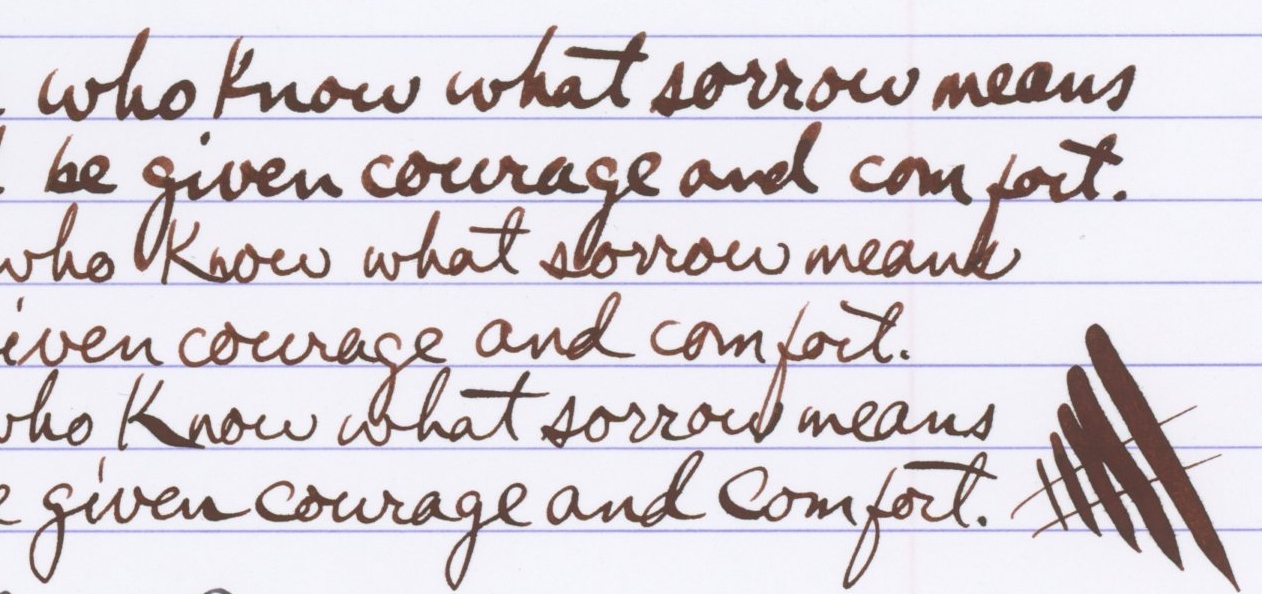 who know what sorrow means
be given courage and comfort.
who know what sorrow means
iven courage and comfort.
who know what sorrow means
given courage and Comfort.